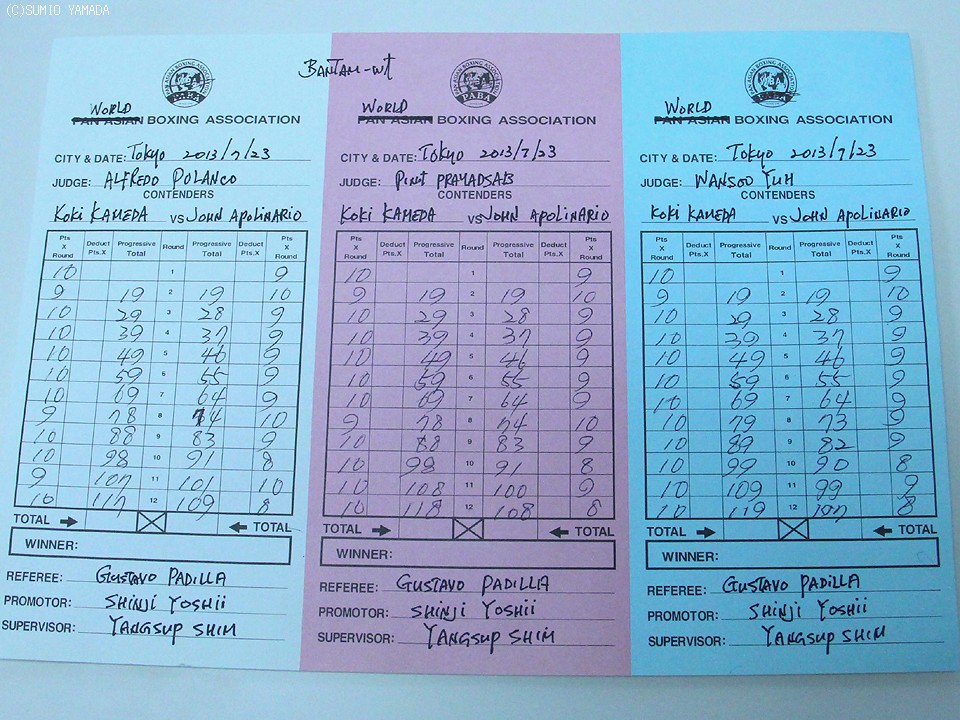 (C)SUMIO YAMADA
BANTAM-WT
PAN ASIAN BOXING ASSOCIATION
PABA
WORLD
PAN ASIAN BOXING ASSOCIATION
CITY & DATE: TOKYO 2013/7/23
JUDGE: ALFREDO POLANCO
CONTENDERS
KOKI KAMEDA VS JOHN APOLINARIO
Pts X Round Deduct Pts.X Progressive Total Round Progressive Total Deduct Pts.X Pts X Round
10 1 9
9 19 2 19 10
10 29 3 28 9
10 39 4 37 9
10 49 5 46 9
10 59 6 55 9
10 69 7 64 9
9 78 8 74 10
10 88 9 83 9
10 98 10 91 8
9 107 11 101 10
10 117 12 109 8
TOTAL TOTAL
WINNER:
REFEREE: GUSTAVO PADILLA
PROMOTOR: SHINJI YOSHII
SUPERVISOR: YANGSUP SHIM
PAN ASIAN BOXING ASSOCIATION
PABA
WORLD
PAN ASIAN BOXING ASSOCIATION
CITY & DATE: TOKYO 2013/7/23
JUDGE: PINIT PRAYADSAB
CONTENDERS
KOKI KAMEDA VS JOHN APOLINARIO
Pts X Round Deduct Pts.X Progressive Total Round Progressive Total Deduct Pts.X Pts X Round
10 1 9
9 19 2 19 10
10 29 3 28 9
10 39 4 37 9
10 49 5 46 9
10 59 6 55 9
10 69 7 64 9
9 78 8 74 10
10 88 9 83 9
10 98 10 91 8
10 108 11 100 9
10 118 12 108 8
TOTAL TOTAL
WINNER:
REFEREE: GUSTAVO PADILLA
PROMOTOR: SHINJI YOSHII
SUPERVISOR: YANGSUP SHIM
PAN ASIAN BOXING ASSOCIATION
PABA
WORLD
PAN ASIAN BOXING ASSOCIATION
CITY & DATE: TOKYO 2013/7/23
JUDGE: WANSOO YUH
CONTENDERS
KOKI KAMEDA VS JOHN APOLINARIO
Pts X Round Deduct Pts.X Progressive Total Round Progressive Total Deduct Pts.X Pts X Round
10 1 9
9 19 2 19 10
10 29 3 28 9
10 39 4 37 9
10 49 5 46 9
10 59 6 55 9
10 69 7 64 9
10 79 8 73 9
10 89 9 82 9
10 99 10 90 8
10 109 11 99 9
10 119 12 107 8
TOTAL TOTAL
WINNER:
REFEREE: GUSTAVO PADILLA
PROMOTOR: SHINJI YOSHII
SUPERVISOR: YANGSUP SHIM